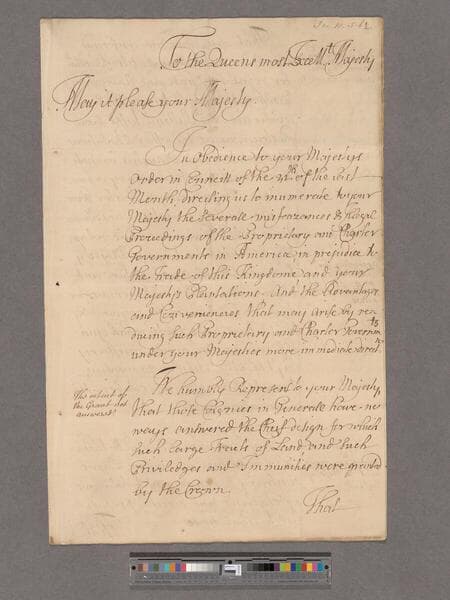 To the Queens most Excellt. Majesty
May it please your Majesty.
In obedience to your Majestys
Order in Councill of the of the last
Month, directing us to enumerate to your
Majesty the severall misfeazances & Illegal
Proceedings of the Proprietary and Charter
Governments in America, in prejudice to
the Trade of this Kingdome and your
Majesty's Plantations. And the Advantages
and Conveniencies that may arise by re-
ducing such Proprietary and Charter Governmts
under your Majesties more immediate
We humbly Represent to your Majesty,
The intent of
the Grant not
answered.
That those Colonies in Generall have no
ways answered the Chief design for which
such large Tracts of Land, and such
Priviledges and Immunities were granted
by the Crown.
That